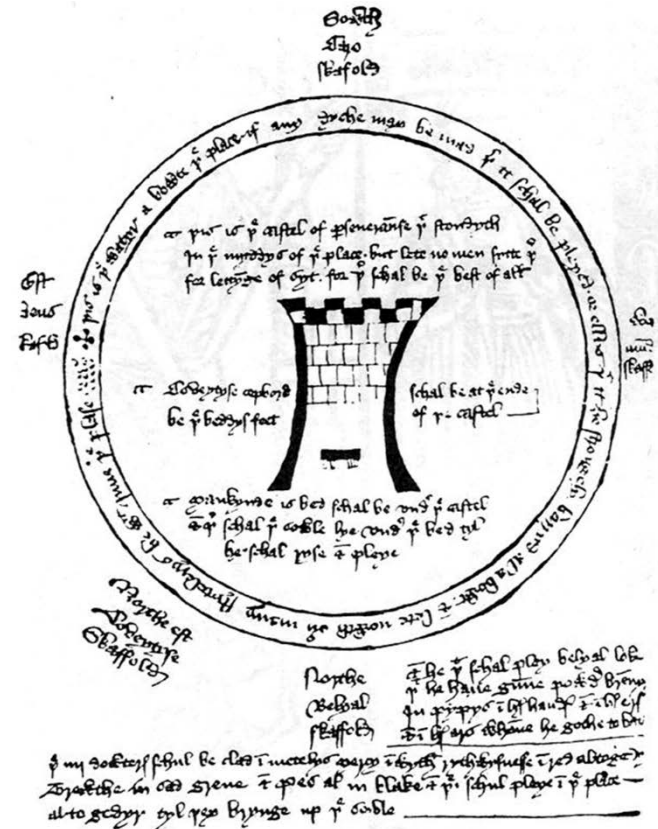 Sowth
Caro
skafold
þis is þe watyr a bowte þe place if any dyche may be mad þer it schal be pleyed or ellys þat it be strongely barryd al a bowt & lete nowth ovyr many stytelerys be wyth Inne þe plase
þis is þe castel of perseveraunse þat stondyth
In þe myddys of þe place but lete no men sytte þer
for lettynge of syt for þer schal be þe best of all
Est
deus
skafold
skafold
Coveytyse copbord schal be at þe ende
be þe beddys feet of þe castel
Mankyndeis bed schal be undyr þe castel
& þer schal þe sowle lye undyr þe bed tyl
he schal ryse & pleye
Northe est
Coveytyse
Skaffold
Northe
Belyal
skaffold
& he þat schal pley belyal loke
þat he have gunne powdyr brenn
In pypys in hys handys & in hys erys
& in hys ars whanne he gothe to batayl
þe iiij dowterys schul be clad in mentelys Mercy in wyth rythwysnesse in red altogedyr
Trewthe in sad grene & Pes al in blake & þei schul pleye in þe place
al to gedyr tyl þey brynge up þe sowle